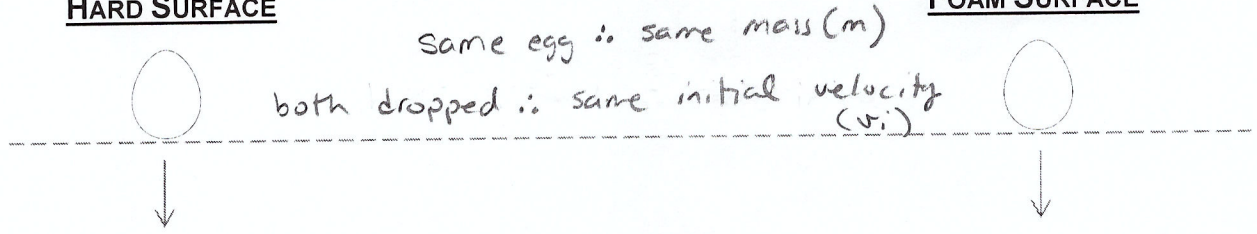 HARD SURFACE
FOAM SURFACE
same egg ∴ same mass (m)
both dropped ∴ same initial velocity
(vi)